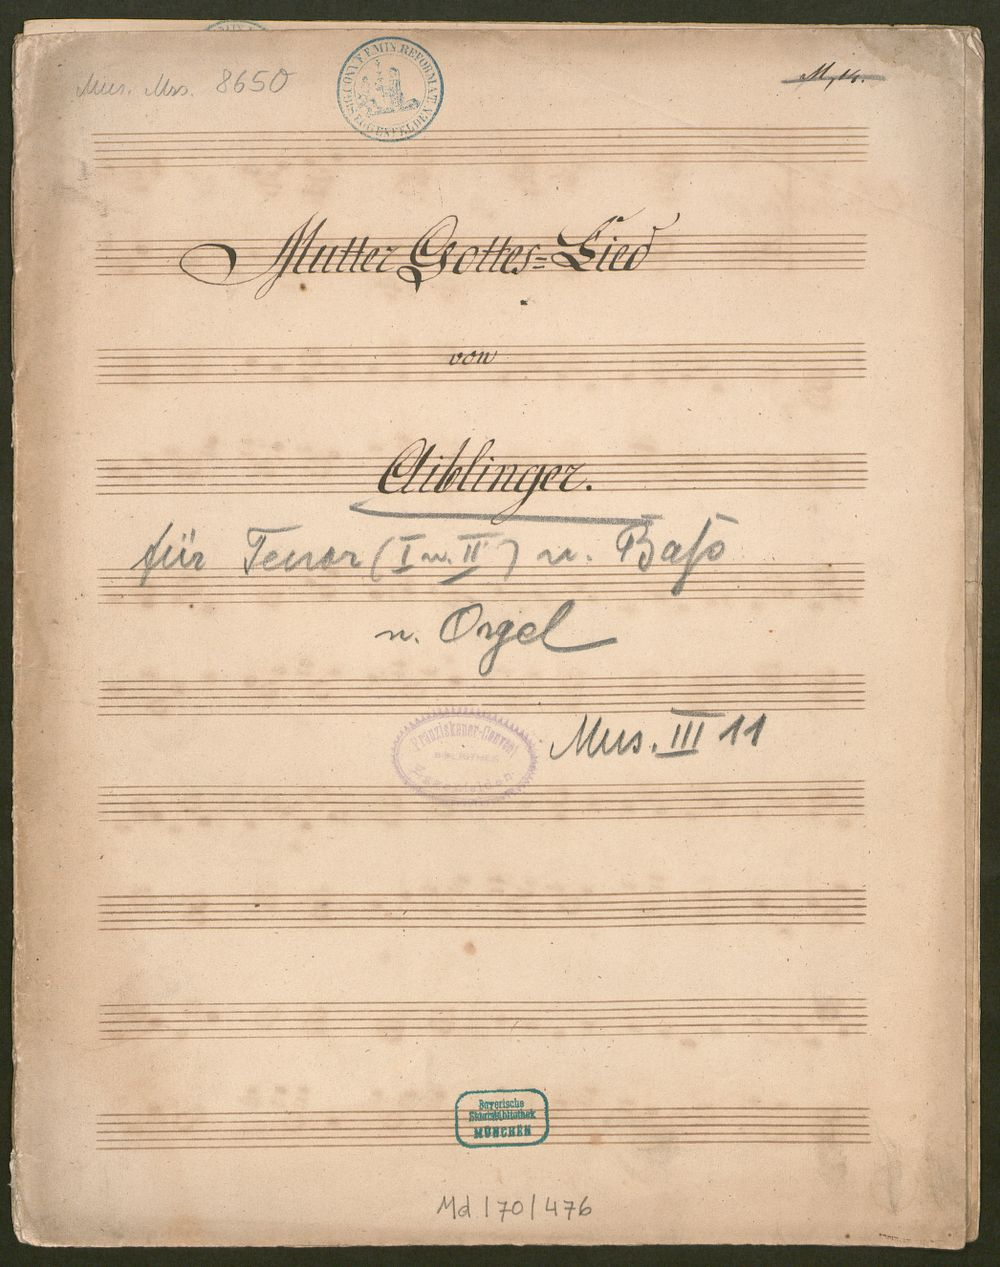 Mus. Mss. 8650
SIG. CONV. F.F. MIN. REFORMAT. EGGENFELDEN
M, 14.
Mutter Gottes=Lied
von
Aiblinger.
für Tenor (I u. II) u. Baſs
u. Orgel
Franziskaner-Convent
BIBLIOTHEK
Eggenfelden.
Mus. III 11
Bayerische
Staatsbibliothek
MÜNCHEN
Md 170/476